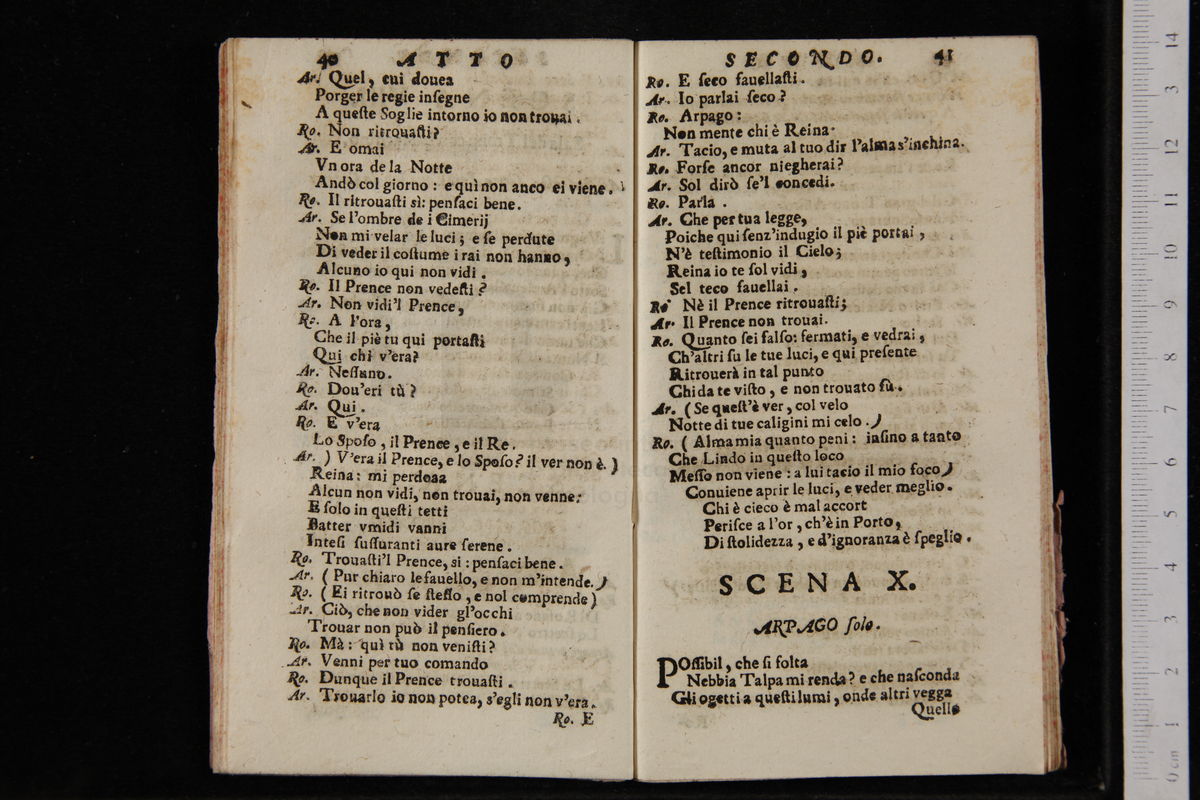 40 ATTO
Ar. Quel, cui douea
Porger le regie insegne
A queſte Soglie intorno io non trouai.
Ro. Non ritrouaſti?
Ar. E omai
Vn ora de la Notte
Andò col giorno: e quì non anco ei viene.
Ro. Il ritrouaſti sì: penſaci bene.
Ar. Se l'ombre de i Cimerij
Non mi velar le luci; e ſe perdute
Di veder il coſtume i rai non hanno,
Alcuno io qui non vidi.
Ro. Il Prence non vedeſti?
Ar. Non vidi'l Prence,
Ro. A l'ora,
Che il piè tu qui portaſti
Qui chi v'era?
Ar. Neſſuno.
Ro. Dou'eri tù?
Ar. Qui.
Ro. E v'era
Lo Spoſo, il Prence, e il Re.
Ar. ) V'era il Prence, e lo Spoſo? il ver non è. )
Reina: mi perdona
Alcun non vidi, non trouai, non venne:
E ſolo in queſti tetti
Batter vmidi vanni
Inteſi ſuſſuranti aure ſerene.
Ro. Trouaſti'l Prence, si: penſaci bene.
Ar. ( Pur chiaro le fauello, e non m'intende. )
Ro. ( Ei ritrouò ſe ſteſſo, e nol comprende )
Ar. Ciò, che non vider gl'occhi
Trouar non può il penſiero.
Ro. Mà: quì tù non veniſti?
Ar. Venni per tuo comando
Ro. Dunque il Prence trouaſti.
Ar. Trouarlo io non potea, s'egli non v'era.
Ro. E
SECONDO. 41
Ro. E ſeco fauellaſti.
Ar. Io parlai ſeco?
Ro. Arpago:
Non mente chi è Reina.
Ar. Tacio, e muta al tuo dir l'alma s'inchina.
Ro. Forſe ancor niegherai?
Ar. Sol dirò ſe'l concedi.
Ro. Parla.
Ar. Che per tua legge,
Poiche qui ſenz'indugio il piè portai,
N'è teſtimonio il Cielo;
Reina io te ſol vidi,
Sel teco fauellai.
Ro. Nè il Prence ritrouaſti;
Ar. Il Prence non trouai.
Ro. Quanto ſei falſo: fermati, e vedrai,
Ch'altri fu le tue luci, e qui preſente
Ritrouerà in tal punto
Chi da te viſto, e non trouato fù.
Ar. ( Se queſt'è ver, col velo
Notte di tue caligini mi celo. )
Ro. ( Alma mia quanto peni: inſino a tanto
Che Lindo in queſto loco
Meſſo non viene: a lui tacio il mio foco )
Conuiene aprir le luci, e veder meglio.
Chi è cieco è mal accort
Periſce a l'or, ch'è in Porto,
Di ſtolidezza, e d'ignoranza è ſpeglio.
SCENA X.
ARPAGO ſolo.
POſſibil, che ſi folta
Nebbia Talpa mi renda? e che naſconda
Gli ogetti a queſti lumi, onde altri vegga
Quello